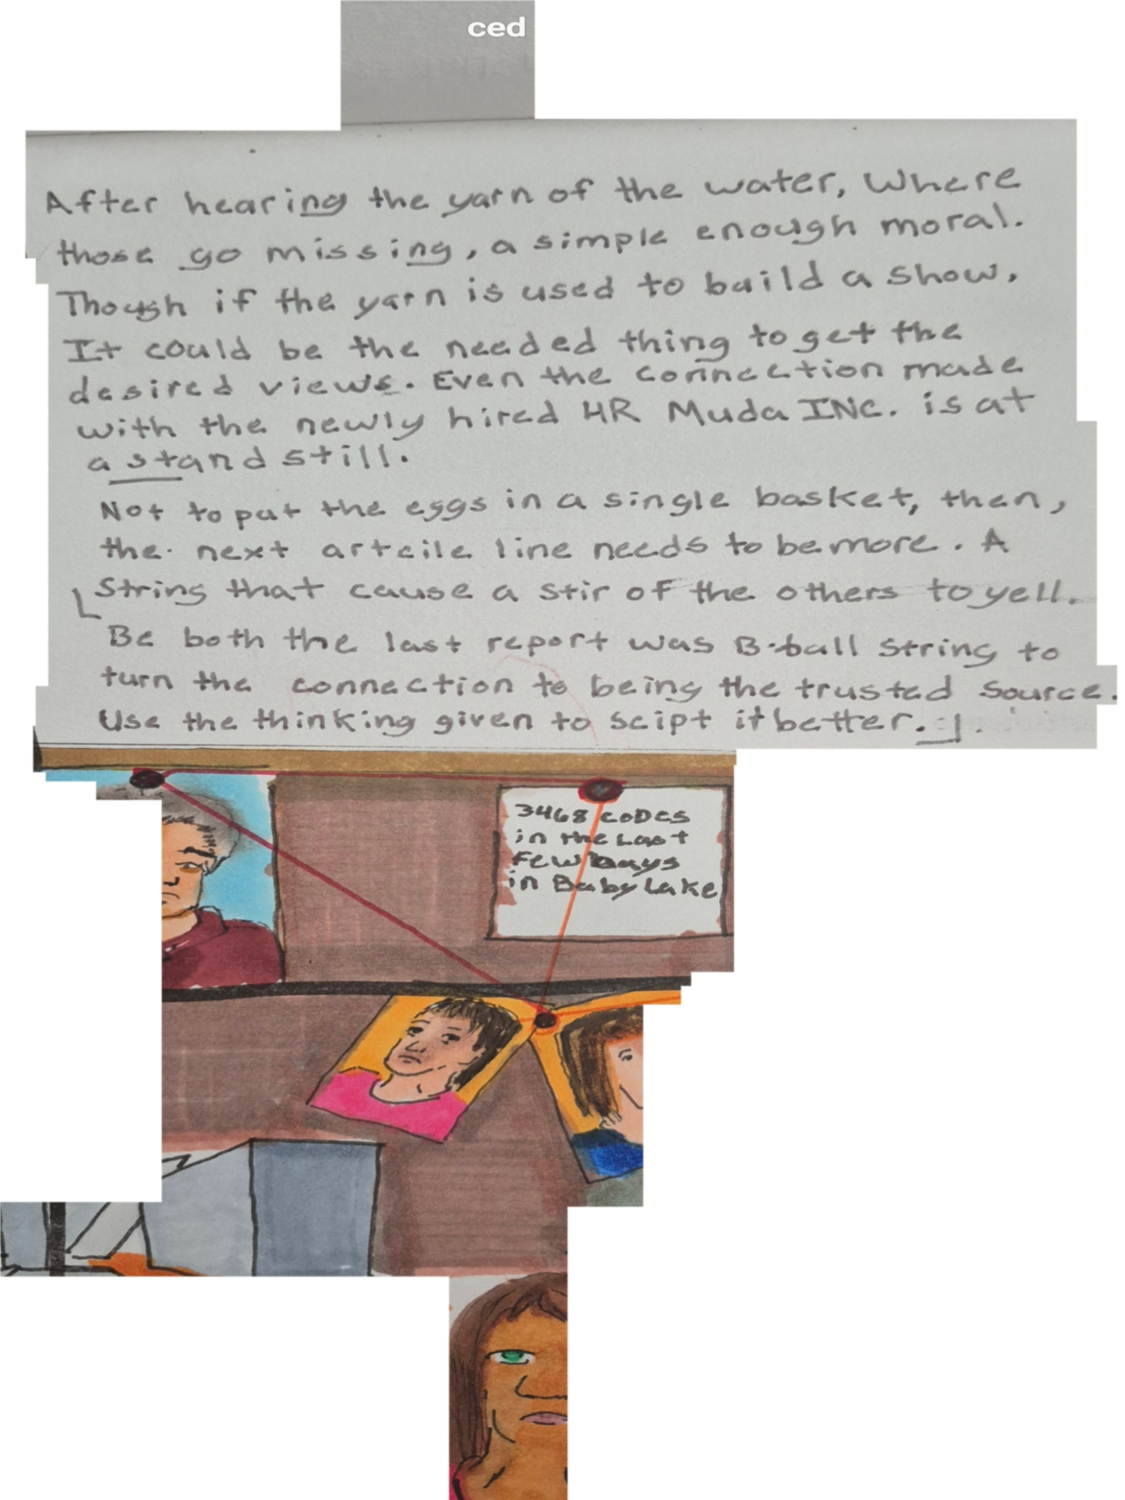 ced
After hearing the yarn of the water, Where
those go missing, a simple enough moral.
Though if the yarn is used to build a show.
It could be the needed thing to get the
desired views. Even the connection made
with the newly hired HR Muda INC. is at
a stand still.
Not to put the eggs in a single basket, then,
the next artcile line needs to be more. A
String that cause a stir of the others to yell.
Be both the last report was B-ball String to
turn the connection to being the trusted source.
Use the thinking given to scipt it better.
3468 CODES
in the Last
Few Days
in Baby Lake